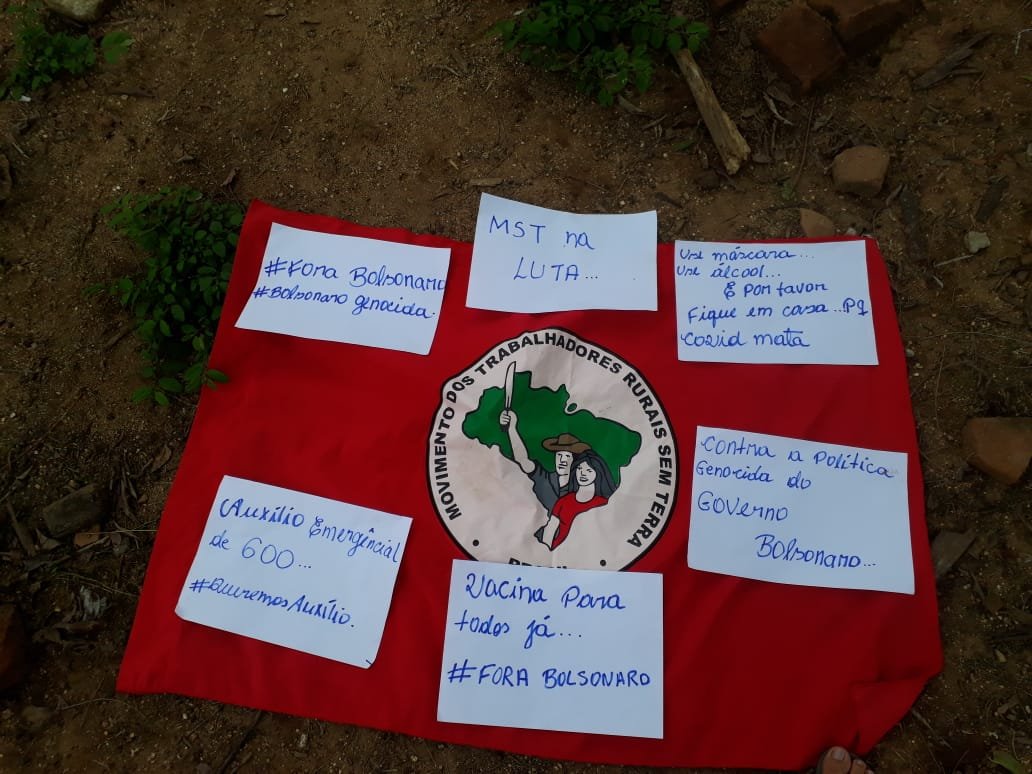 #Fora Bolsonaro
#Bolsonaro genocida.
MST na
LUTA...
Use máscara...
Use álcool...
E Por favor
Fique em casa...Pq
Covid mata
MOVIMENTO DOS TRABALHADORES RURAIS SEM TERRA
Contra a Política
Genocida do
GOVerno
Bolsonaro...
Auxílio Emergêncial
de 600...
#QueremosAuxílio.
Vacina Para
todos já...
#FORA BOLSONARO